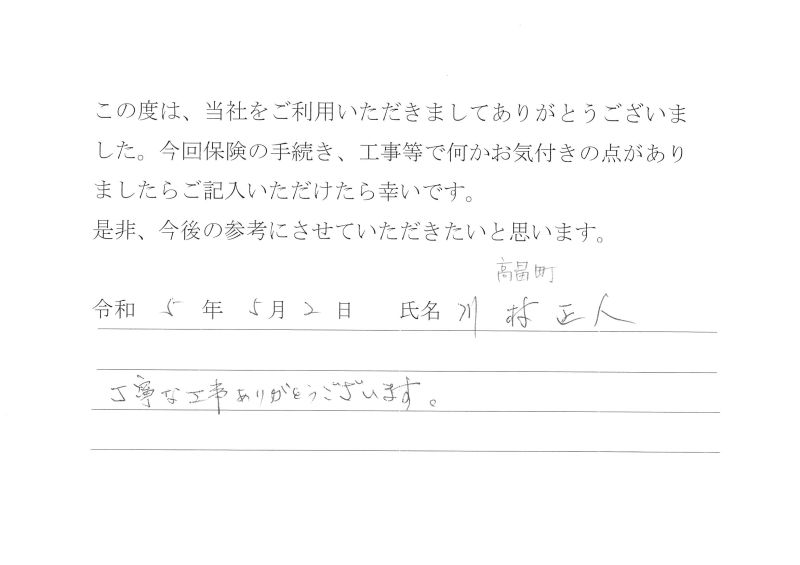 この度は、当社をご利用いただきましてありがとうございま
した。今回保険の手続き、工事等で何かお気付きの点があり
ましたらご記入いただけたら幸いです。
是非、今後の参考にさせていただきたいと思います。
高畠町
令和 5 年 5月 2 日 氏名 川村正人
丁寧な工事ありがとうございます。